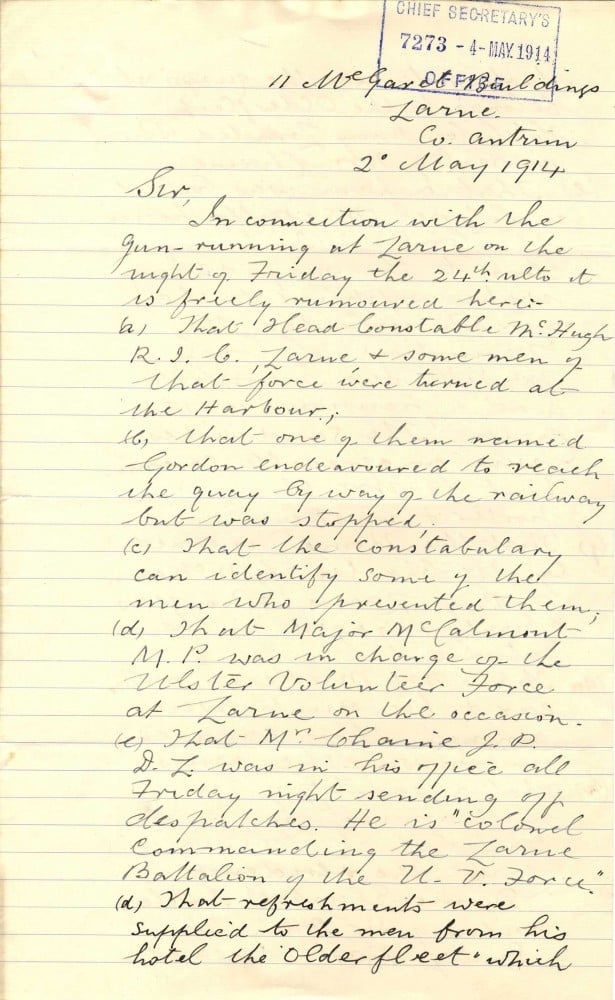 CHIEF SECRETARY'S
7273 - 4-MAY.1914
OFFICE
11 McGarel Buildings
Larne.
Co. Antrim
2° May 1914
Sir,
In connection with the
gun-running at Larne on the
night of Friday the 24th ulto it
is freely rumoured here:-
(a) That Head Constable McHugh
R.I.C., Larne, & some men of
that force were turned at
the Harbour;
(b) that one of them named
Gordon endeavoured to reach
the quay by way of the railway
but was stopped;
(c) That the constabulary
can identify some of the
men who prevented them;
(d) That Major McCalmont
M.P. was in charge of the
Ulster Volunteer Force
at Larne on the occasion.
(e) That Mr. Chaine J.P.
D.L. was in his office all
Friday night sending off
despatches. He is "Colonel
Commanding the Larne
Battalion of the U.V. Force."
(d) That refreshments were
supplied to the men from his
hotel the "Olderfleet" which